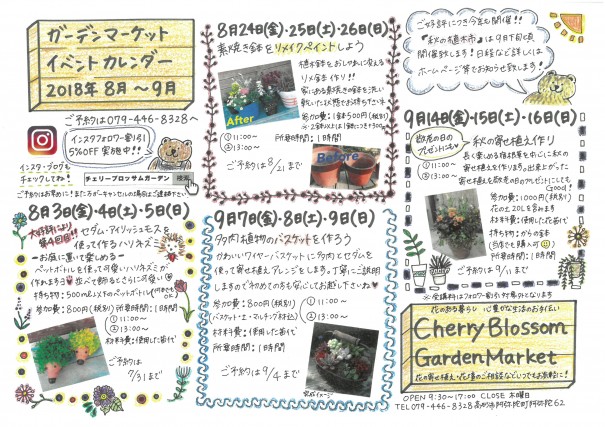 ガーデンマーケット
イベントカレンダー
2018年 8月～9月
ご予約は079-446-8328へ
インスタフォロワー割引
5%OFF 実施中!!
インスタ・ブログも
チェックしてね!
チェリーブロッサムガーデン 検索
8月3日(金)・4日(土)・5日(日)
大好評により
第4回目!!
セダム・アイリッシュモスを
使って作るハリネズミ
ーお庭に置いて楽しめるー
ペットボトルを使って可愛いハリネズミが
作れますよ
持ち物:500mℓ以上のペットボトル
参加費:800円(税別)
①11:00～
②13:00～
材料費:使用した苗代
所要時間:1時間
ご予約は
7/31まで
8月24日(金)・25日(土)・26日(日)
素焼き鉢をリメイクペイントしよう
植木鉢をおしゃれに変える
リメ鉢作り!!
家にある素焼きの鉢を洗い
乾いた状態でお持ち下さい
参加費:1鉢500円(税別)
①11:00～
②13:00～
所要時間:1時間
ご予約は8/21まで
After
Before
9月7日(金)・8日(土)・9日(日)
多肉植物のバスケットを作ろう
かわいいワイヤーバスケットに多肉とセダムを
使って寄せ植えアレンジをします。丁寧にご説明
しますので今初めての方も安心してお越し下さいね
参加費:800円(税別)
(バスケット・土・マルチング材込)
①11:00～
②13:00～
材料費:使用した苗代
所要時間:1時間
ご予約は9/4まで
完成イメージ
ご好評につき今年も開催!!
『秋の植木市』は9月下旬頃
開催致します!日程など詳しくは
ホームページ等でお知らせ致します!
9月14日(金)・15日(土)・16日(日)
敬老の日の
プレゼントにも
秋の寄せ植え作り
長く楽しめる宿根草を中心に秋の
寄せ植えを作ります。出来上がった
寄せ植えを敬老の日のプレゼントにしても
Good!
参加費:1000円(税別)
花の土20L含みます
材料費:使用した苗代
持ち物:からの鉢
(当店でも購入可)
①11:00～
②13:00～
所要時間:1時間
ご予約は9/11まで
※受講料はフォロワー割引対象外となります
花のある暮らし 心豊かな生活のお手伝い
Cherry Blossom
Garden Market
花の寄せ植え・花壇のご相談などいつでもお気軽に!
OPEN 9:30～17:00 CLOSE 木曜日
TEL079-446-8328 高砂市阿弥陀町阿弥陀62